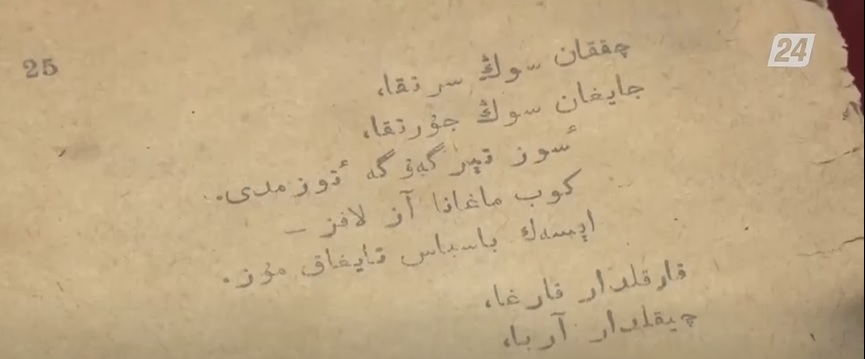 24
25
چققان سوڭ سرتقا،
جايغان سوڭ جۇرتقا،
ٴسوز تيرگەۋگە ٴتوزمدى.
كوب ماغانا آز لافز –
ايسەك باسباس تايغاق مۇز.
قارقلدار قارغا،
چيقلدار آربا،